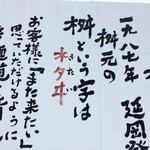 一九八七年
延岡発
桝元の
桝という字は
木タヰ
お客様に「また来たい」
思っていただけるように